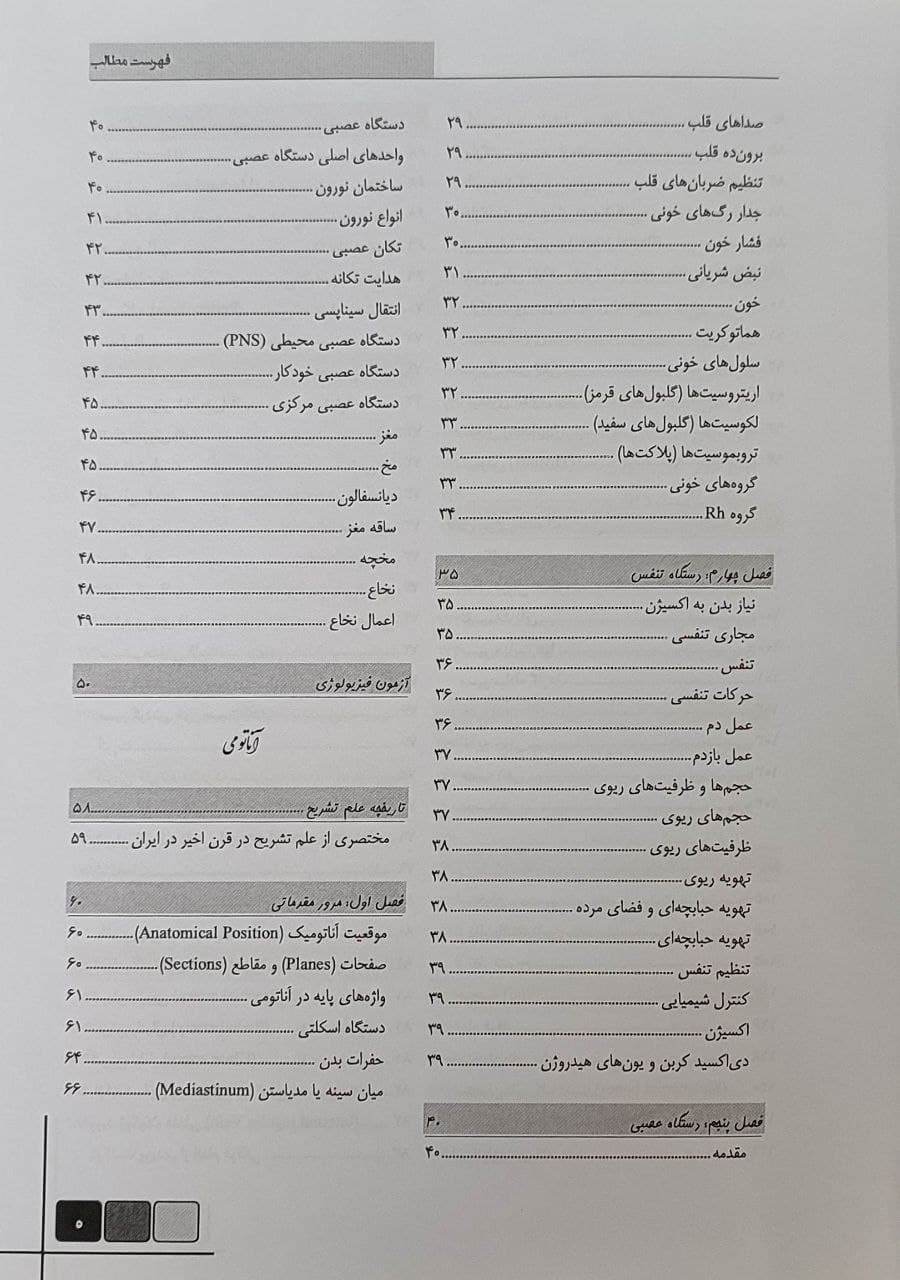 فهرست مطالب
صداهای قلب ۲۹
برون‌ده قلب ۲۹
تنظیم ضربان‌های قلب ۲۹
جدار رگ‌های خونی ۳۰
فشار خون ۳۰
نبض شریانی ۳۱
خون ۳۲
هماتوکریت ۳۲
سلول‌های خونی ۳۲
اریتروسیت‌ها (گلبول‌های قرمز) ۳۲
لکوسیت‌ها (گلبول‌های سفید) ۳۳
تروبموسیت‌ها (پلاکت‌ها) ۳۳
گروه‌های خونی ۳۳
گروه Rh ۳۴
فصل چهارم: دستگاه تنفس ۳۵
نیاز بدن به اکسیژن ۳۵
مجاری تنفسی ۳۵
تنفس ۳۶
حرکات تنفسی ۳۶
عمل دم ۳۶
عمل بازدم ۳۷
حجم‌ها و ظرفیت‌های ریوی ۳۷
حجم‌های ریوی ۳۷
ظرفیت‌های ریوی ۳۸
تهویه ریوی ۳۸
تهویه حبابچه‌ای و فضای مرده ۳۸
تهویه حبابچه‌ای ۳۸
تنظیم تنفس ۳۹
کنترل شیمیایی ۳۹
اکسیژن ۳۹
دی‌اکسید کربن و یون‌های هیدروژن ۳۹
فصل پنجم: دستگاه عصبی ۴۰
مقدمه ۴۰
دستگاه عصبی ۴۰
واحدهای اصلی دستگاه عصبی ۴۰
ساختمان نورون ۴۰
انواع نورون ۴۱
تکان عصبی ۴۲
هدایت تکانه ۴۲
انتقال سیناپسی ۴۳
دستگاه عصبی محیطی (PNS) ۴۴
دستگاه عصبی خودکار ۴۴
دستگاه عصبی مرکزی ۴۵
مغز ۴۵
مخ ۴۵
دیانسفالون ۴۶
ساقه مغز ۴۷
مخچه ۴۸
نخاع ۴۸
اعمال نخاع ۴۹
آزمون فیزیولوژی ۵۰
آناتومی
تاریخچه علم تشریح ۵۸
مختصری از علم تشریح در قرن اخیر در ایران ۵۹
فصل اول: مرور مقدماتی ۶۰
موقعیت آناتومیک (Anatomical Position) ۶۰
صفحات (Planes) و مقاطع (Sections) ۶۰
واژه‌های پایه در آناتومی ۶۱
دستگاه اسکلتی ۶۱
حفرات بدن ۶۴
میان سینه یا مدیاستن (Mediastinum) ۶۶
۵